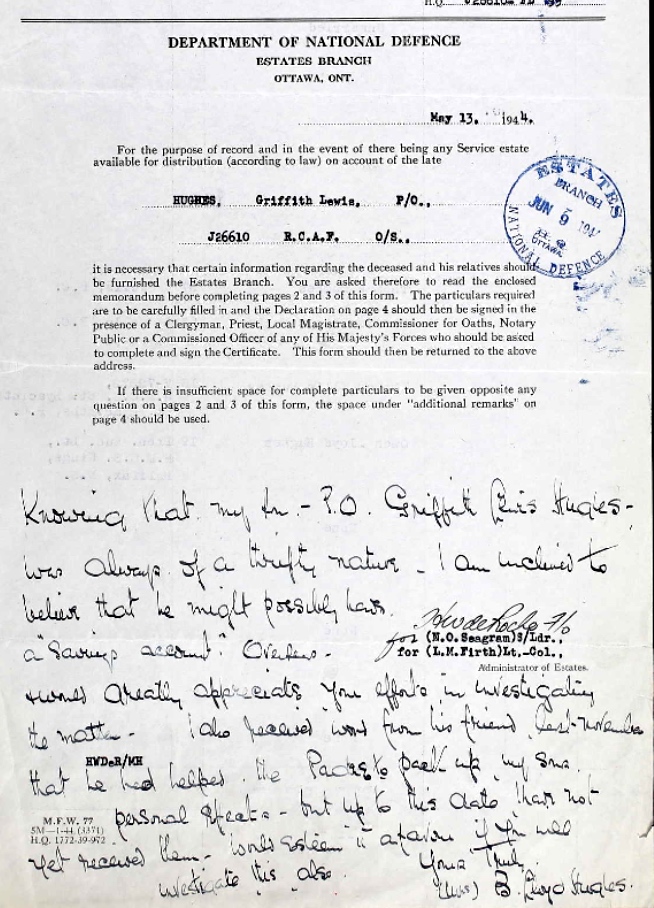 H.Q.
DEPARTMENT OF NATIONAL DEFENCE
ESTATES BRANCH
OTTAWA, ONT.
May 13, 1944.
For the purpose of record and in the event of there being any Service estate
available for distribution (according to law) on account of the late
HUGHES, Griffith Lewis, P/O.,
J26610 R.C.A.F. O/S.,
ESTATES
BRANCH
JUN 9 194
H.Q.
OTTAWA
NATIONAL DEFENCE
it is necessary that certain information regarding the deceased and his relatives should
be furnished the Estates Branch. You are asked therefore to read the enclosed
memorandum before completing pages 2 and 3 of this form. The particulars required
are to be carefully filled in and the Declaration on page 4 should then be signed in the
presence of a Clergyman, Priest, Local Magistrate, Commissioner for Oaths, Notary
Public or a Commissioned Officer of any of His Majesty's Forces who should be asked
to complete and sign the Certificate. This form should then be returned to the above
address.
If there is insufficient space for complete particulars to be given opposite any
question on pages 2 and 3 of this form, the space under "additional remarks" on
page 4 should be used.
Knowing that my son - P.O. Griffith Lewis Hughes -
was always of a thrifty nature - I am inclined to
believe that he might possibly have
a "Savings account" Overseas -
HWdeRoche F/O
for (N.O.Seagram)S/Ldr.,
for (L.M.Firth)Lt.-Col.,
Administrator of Estates.
would greatly appreciate your efforts in investigating
the matter - I also received word from his friend last November
HWDeR/MH
that he had helped the Padre to pack up my sons
personal effects - but up to this date have not
M.F.W. 77
5M-1-44 (3371)
H.Q. 1772-39-972
yet received them - Would esteem it a favour if you will
investigate this also
Yours Truly
(Mrs) B. Lloyd Hughes.